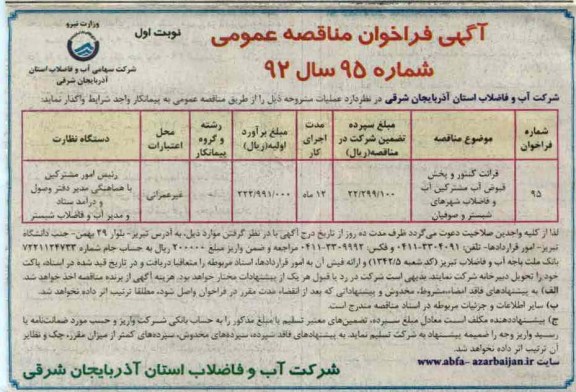 وزارت نیرو
شرکت سهامی آب و فاضلاب استان
آذربایجان شرقی
نوبت اول
آگهی فراخوان مناقصه عمومی
شماره ۹۵ سال ۹۲
شرکت آب و فاضلاب استان آذربایجان شرقی در نظردارد عملیات مشروحه ذیل را از طریق مناقصه عمومی به پیمانکار واجد شرایط واگذار نماید:
شماره فراخوان
موضوع مناقصه
مبلغ سپرده تضمین شرکت در مناقصه(ریال)
مدت اجرای کار
مبلغ برآورد اولیه(ریال)
رشته و گروه پیمانکار
محل اعتبارات
دستگاه نظارت
۹۵
قرائت کنتور و پخش
قبوض آب مشترکین آب
و فاضلاب شهرهای
شبستر و صوفیان
۲۲/۲۹۹/۱۰۰
۱۲ ماه
۲۲۲/۹۹۱/۰۰۰
غیرعمرانی
رئیس امور مشترکین
با هماهنگی مدیر دفتر وصول
و درآمد ستاد
و مدیر آب و فاضلاب شبستر
لذا از کلیه واجدین صلاحیت دعوت می‌گردد ظرف مدت ده روز از تاریخ درج آگهی با در نظر گرفتن موارد ذیل، به آدرس تبریز- بلوار ۲۹ بهمن- جنب دانشگاه
تبریز- امور قراردادها- تلفن: ۳۳۰۴۰۹۱-۰۴۱۱ و فکس: ۳۳۰۹۹۹۲-۰۴۱۱ مراجعه و ضمن واریز مبلغ ۲۰۰۰۰۰ ریال به حساب جام شماره ۷۲۲۱۱۲۴۷۳۳
بانک ملت باجه آب و فاضلاب تبریز (کد شعبه ۱۳۴۲/۵) و ارائه فیش آن به امور قراردادها، اسناد مربوطه را متعاقبا دریافت و در تاریخ قید شده در اسناد، پاکت
خود را تحویل دبیرخانه شرکت نمایند. بدیهی است شرکت در رد یا قبول هر یک از پیشنهادات مختار خواهد بود. هزینه آگهی از برنده مناقصه اخذ خواهد شد.
الف) به پیشنهادهای فاقد امضاء،مشروط، مخدوش و پیشنهاداتی که بعد از انقضاء مدت مقرر در فراخوان واصل شود، مطلقا ترتیب اثر داده نخواهد شد.
ب) سایر اطلاعات و جزئیات مربوطه در اسناد مناقصه مندرج است.
ج) پیشنهاددهنده مکلف است معادل مبلغ سپرده، تضمین‌های معتبر تسلیم یا مبلغ مذکور را به حساب بانکی شرکت واریز و حسب مورد ضمانتنامه یا
رسید واریز وجه را ضمیمه پیشنهاد به شرکت تسلیم نماید. به پیشنهادهای فاقد سپرده، سپرده‌های مخدوش، سپرده‌های کمتر از میزان مقرر، چک و نظایر
آن ترتیب اثر داده نخواهد شد.
سایت www.abfa- azarbaijan.ir
شرکت آب و فاضلاب استان آذربایجان شرقی